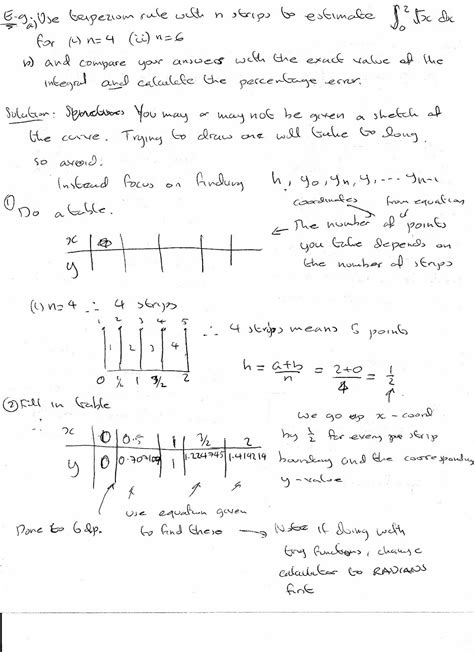 E.g. a) Use terpezium rule with n strips to estimate ∫₀² √x dx
for (i) n=4 (ii) n=6
b) and compare your answers with the exact value of the
integral and calculate the percentage error.
Solution: You may or may not be given a sketch of
the curve. Trying to draw one will take to long.
so avoid.
Instead focus on finding h, y₀, yₙ, y₁ .... yₙ₋₁
coordinates from equation
① Do a table.
← The number of points
you take depends on
the number of strips
x 0
y
(i) n=4 ∴ 4 strips
1 2 3 4 5
1 2 3 4
0 ½ 1 3/2 2
∴ 4 strips means 5 points
h = a+b/n = 2+0/4 = 1/2
② Fill in table
∴
x 0 0.5 1 3/2 2
y 0 0.707107 1 1.224745 1.414214
we go up x-coord
by ½ for every strip
boundary and the corresponding
y-value
use equation given
to find these
Done to 6dp.
Note if doing with
trig functions, change
calculator to RADIANS
first